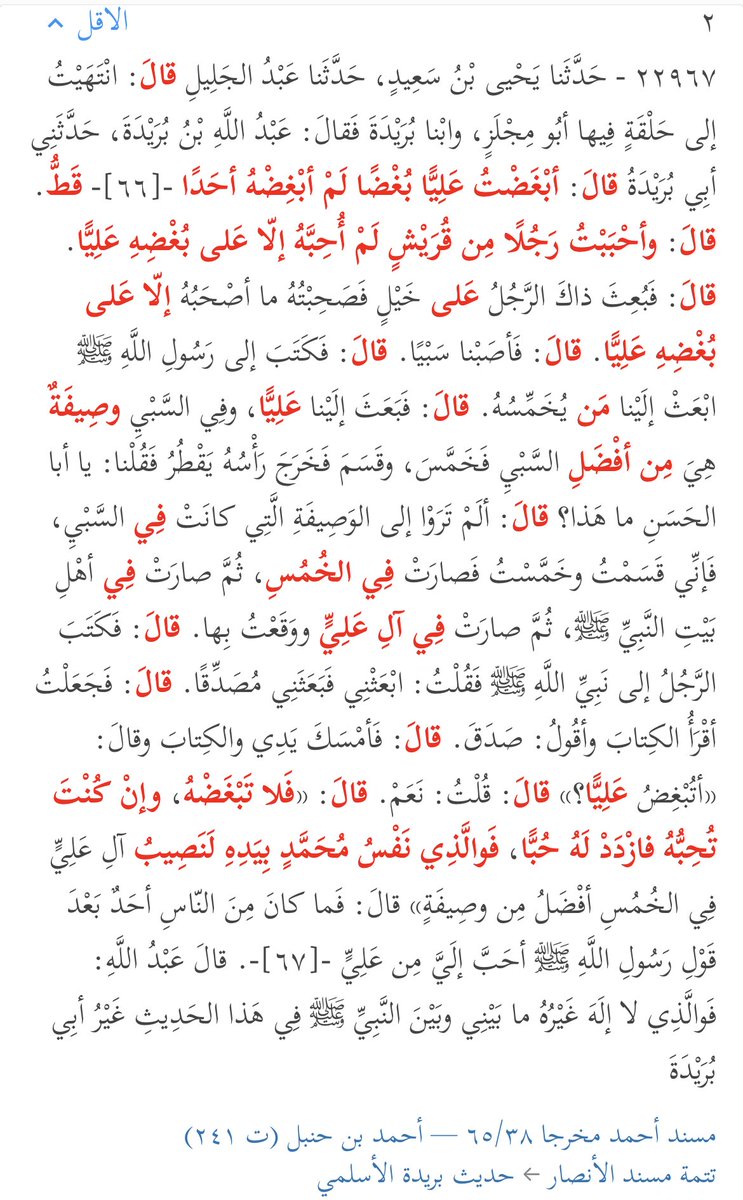 ٢
الاقل
٢٢٩٦٧ - حَدَّثَنا يَحْيى بْنُ سَعِيدٍ، حَدَّثَنا عَبْدُ الجَلِيلِ قالَ: انْتَهَيْتُ
إلى حَلْقَةٍ فِيها أبُو مِجْلَزٍ، وابْنا بُرَيْدَةَ فَقالَ: عَبْدُ اللَّهِ بْنُ بُرَيْدَةَ، حَدَّثَنِي
أبِي بُرَيْدَةُ قالَ: أبْغَضْتُ عَلِيًّا بُغْضًا لَمْ أبْغِضْهُ أحَدًا -[٦٦]- قَطُّ.
قالَ: وأحْبَبْتُ رَجُلًا مِن قُرَيْشٍ لَمْ أُحِبَّهُ إلّا عَلى بُغْضِهِ عَلِيًّا.
قالَ: فَبُعِثَ ذاكَ الرَّجُلُ عَلى خَيْلٍ فَصَحِبْتُهُ ما أصْحَبُهُ إلّا عَلى
بُغْضِهِ عَلِيًّا. قالَ: فَأصَبْنا سَبْيًا. قالَ: فَكَتَبَ إلى رَسُولِ اللَّهِ ﷺ
ابْعَثْ إلَيْنا مَن يُخَمِّسُهُ. قالَ: فَبَعَثَ إلَيْنا عَلِيًّا، وفِي السَّبْيِ وصِيفَةٌ
هِيَ مِن أفْضَلِ السَّبْيِ فَخَمَّسَ، وقَسَمَ فَخَرَجَ رَأْسُهُ يَقْطُرُ فَقُلْنا: يا أبا
الحَسَنِ ما هَذا؟ قالَ: ألَمْ تَرَوْا إلى الوَصِيفَةِ الَّتِي كانَتْ فِي السَّبْيِ،
فَإنِّي قَسَمْتُ وخَمَّسْتُ فَصارَتْ فِي الخُمُسِ، ثُمَّ صارَتْ فِي أهْلِ
بَيْتِ النَّبِيِّ ﷺ، ثُمَّ صارَتْ فِي آلِ عَلِيٍّ ووَقَعْتُ بِها. قالَ: فَكَتَبَ
الرَّجُلُ إلى نَبِيِّ اللَّهِ ﷺ فَقُلْتُ: ابْعَثْنِي فَبَعَثَنِي مُصَدِّقًا. قالَ: فَجَعَلْتُ
أقْرَأُ الكِتابَ وأقُولُ: صَدَقَ. قالَ: فَأمْسَكَ يَدِي والكِتابَ وقالَ:
«أتُبْغِضُ عَلِيًّا؟» قالَ: قُلْتُ: نَعَمْ. قالَ: «فَلا تَبْغَضْهُ، وإنْ كُنْتَ
تُحِبُّهُ فازْدَدْ لَهُ حُبًّا، فَوالَّذِي نَفْسُ مُحَمَّدٍ بِيَدِهِ لَنَصِيبُ آلِ عَلِيٍّ
فِي الخُمُسِ أفْضَلُ مِن وصِيفَةٍ» قالَ: فَما كانَ مِنَ النّاسِ أحَدٌ بَعْدَ
قَوْلِ رَسُولِ اللَّهِ ﷺ أحَبَّ إلَيَّ مِن عَلِيٍّ -[٦٧]-. قالَ عَبْدُ اللَّهِ:
فَوالَّذِي لا إلَهَ غَيْرُهُ ما بَيْنِي وبَيْنَ النَّبِيِّ ﷺ فِي هَذا الحَدِيثِ غَيْرُ أبِي
بُرَيْدَةَ
مسند أحمد مخرجا ٦٥/٣٨ — أحمد بن حنبل (ت ٢٤١)
تتمة مسند الأنصار ← حديث بريدة الأسلمي